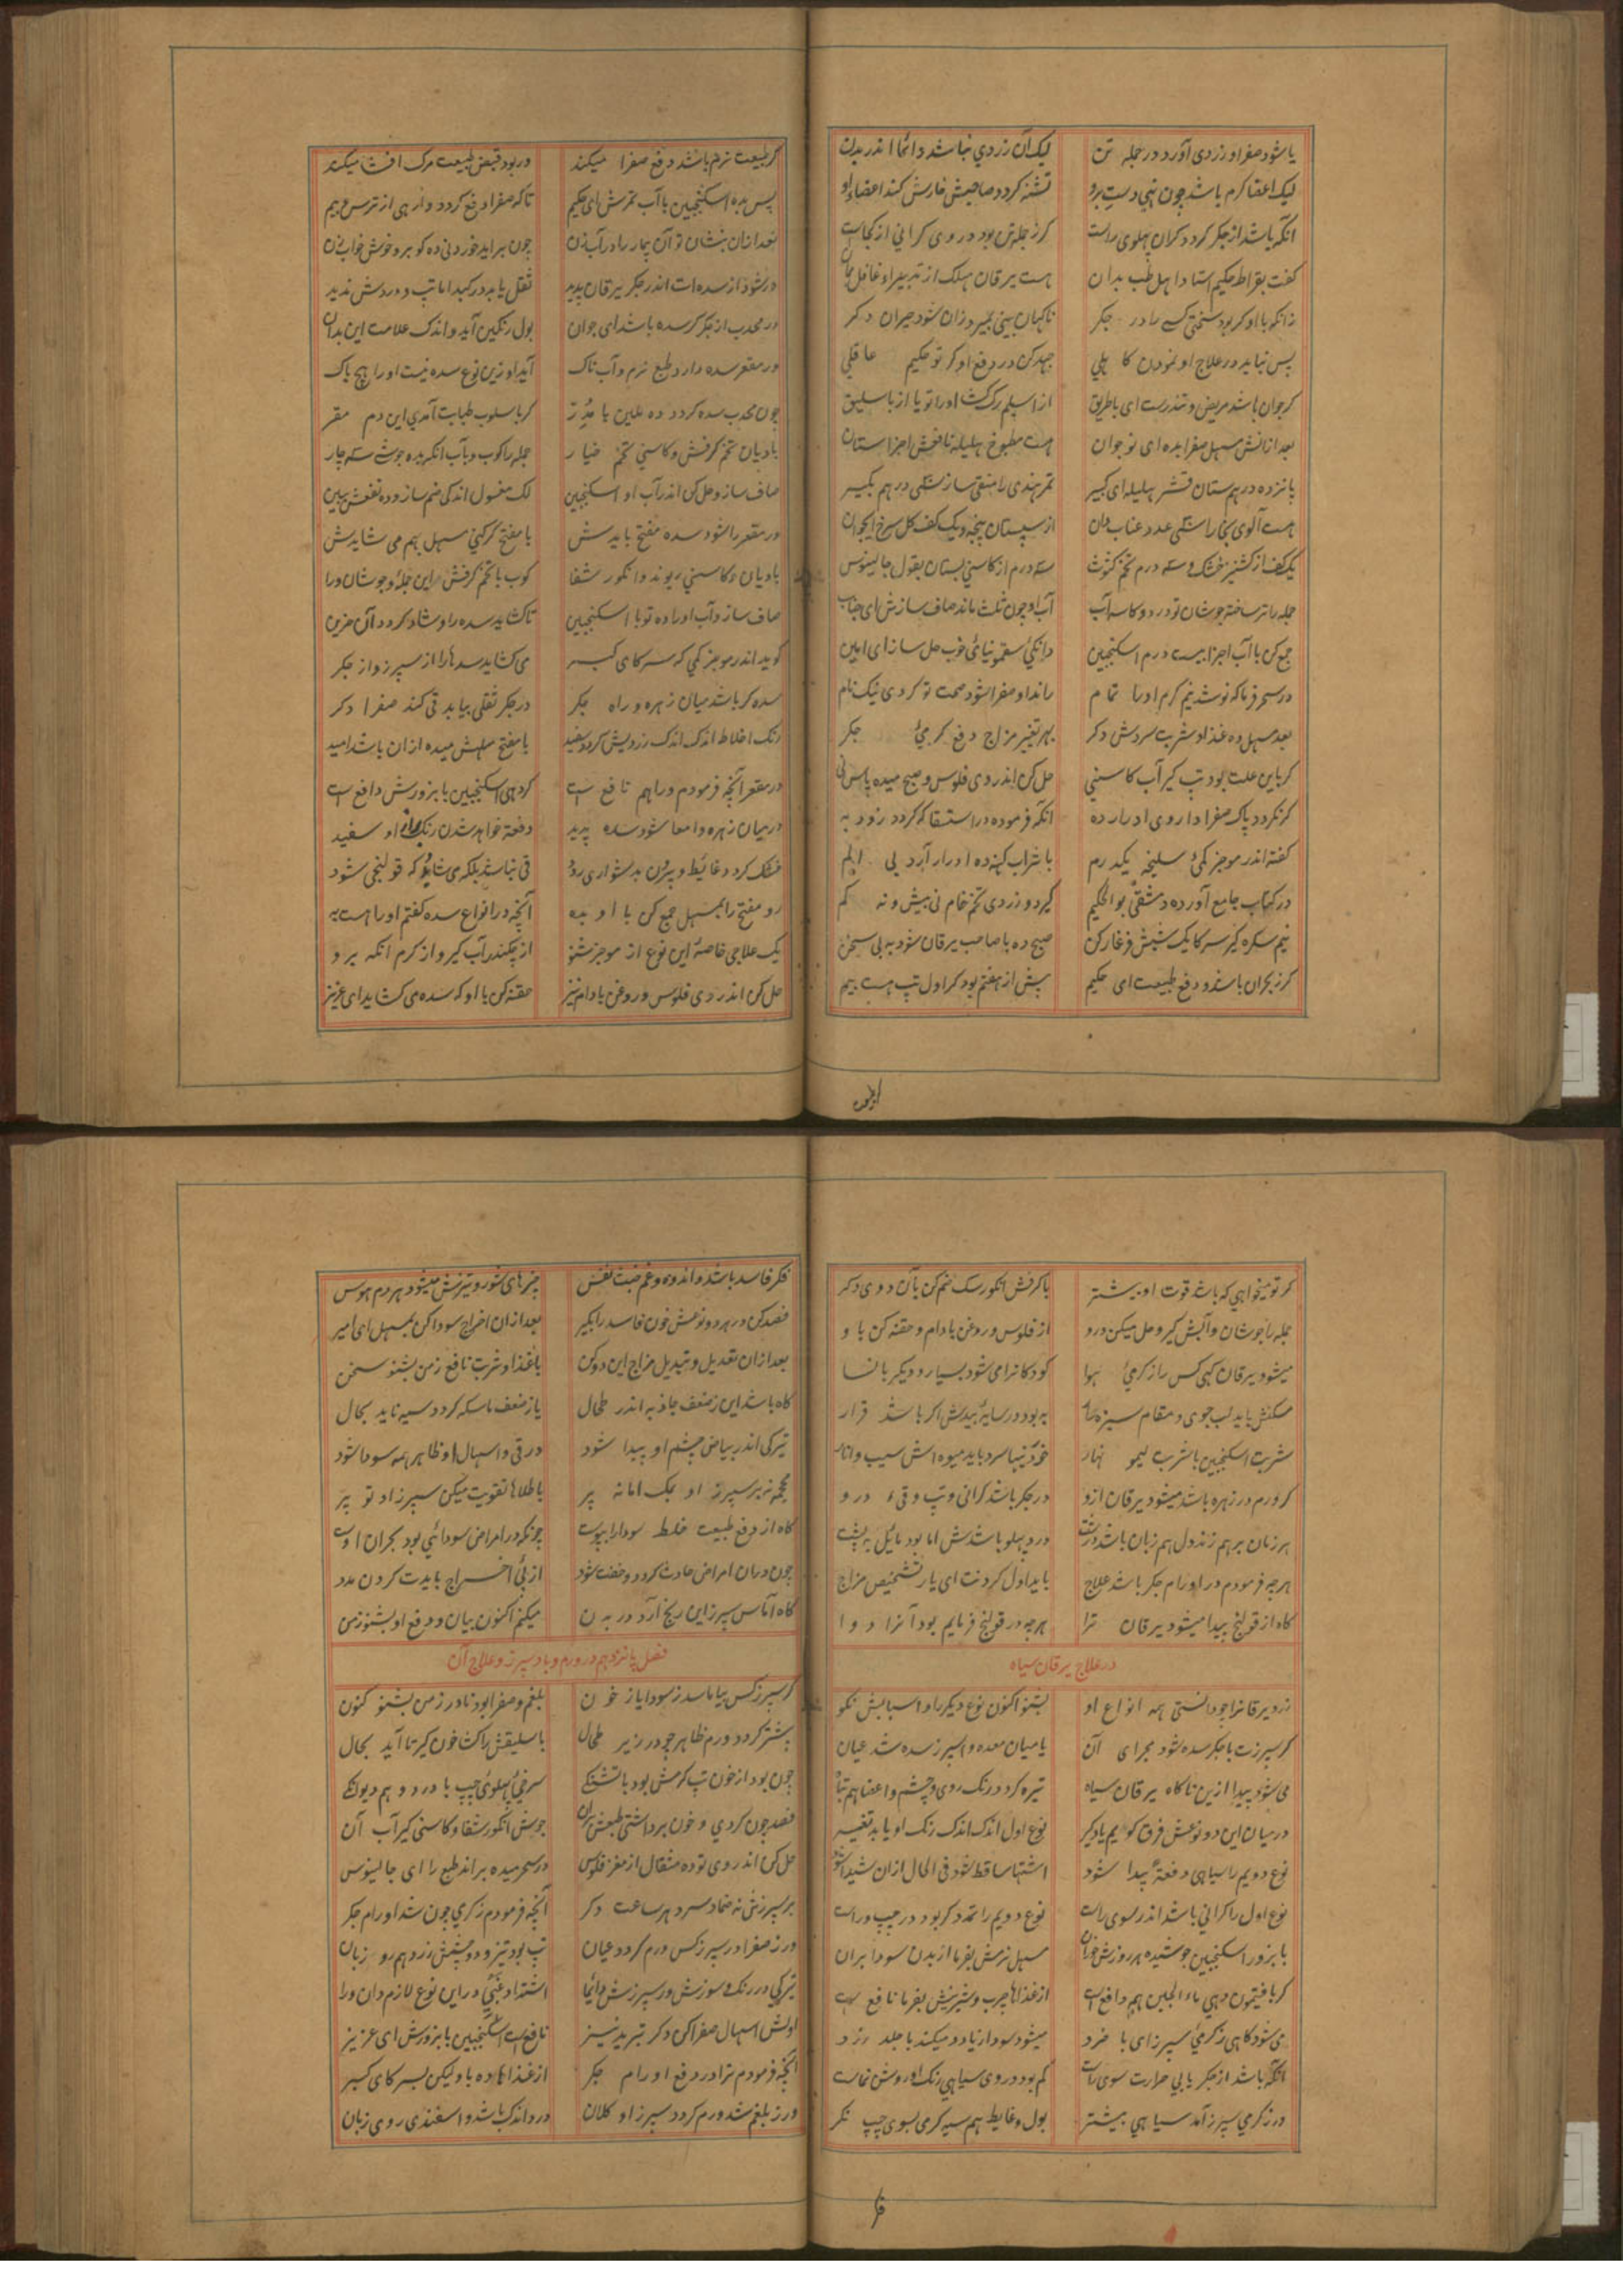 یا شود صفرا و زردی آورد در جمله تن لیک آن زردی نباشد دائما اندر بدن
لیک اعضا گرم باشد چون نهی دست برو تشنه گردد صاحبش خارش کند اعضاء او
آنکه باشد از جگر گردد گران پهلوی راست کز جلدش بود در وی گرانی از کجاست
گفت بقراط حکیم استاد اهل طب بدان هست یرقان مهلک از تدبیر او غافل ممان
زانکه با او گر بود سختی کسی را در جگر ناگهان بینی بمیرد زان شود حیران دگر
پس نباید در علاج او نمودن کاهلی جهد کن در دفع او گر تو حکیم عاقلی
گر جوان باشد مریض و تندرست ای باطریق از اسیلم رگ گشا او را تو یا از باسلیق
بعد از انش مسهل صفرا بده ای نوجوان هست مطبوخ هلیله نافعش اجزا ستان
پانزده درهم ستان قشر هلیله ای کبیر تمر هندی را منقی ساز سی درهم بگیر
هست آلوی بخارا سی عدد عناب دان از سپستان پنجه و یک کف گل سرخ ای جوان
یک کف از کشنیز خشک و سه درم تخم کثوث سه درم از کاسنی بستان بقول جالینوس
جمله را تر ساخته جوشان تو در دو کاسه آب آب او چون ثلث ماند صاف سازش ای جناب
جمع کن با آب اجزا بیست درم اسکنجبین دانگی سقمونیائی خوب حل ساز ای امین
در سحر فرما که نوشد نیم گرم او را تمام راند او صفرا شود صحت تو کردی نیک نام
بعد مسهل ده غذا و شربت سردش دگر بهر تغییر مزاج دفع گرمیٔ جگر
گر باین علت بود تب گیر آب کاسنی حل کن اندر وی فلوس و صبح میده
گر نگردد پاک صفرا داروی ادرار ده آنکه فرموده در استسقا که گردد زود به
گفته اندر موجز کمیٔ سلیخه یکدرم با شراب کهنه ده ادرار آرد بی الم
در کتاب جامع آورده دمشقی بوالحکیم گیرد و زردی تخم خام نی بیش و نه کم
نیم سکره گیر سرکا یک شبش فرغار کن صبح ده با صاحب یرقان شود به بی سخن
گر ز بحران باشد و دفع طبیعت ای حکیم پیش از هفتم بود گر اول تب هست بیم
گر طبیعت نرم باشد دفع صفرا میکند ور بود قبض طبیعت مرگ افشا میکند
پس بده اسکنجبین با آب تمرش ای حکیم تا که صفرا دفع گردد وارهی از ترس و بیم
بعد ازان بنشان تو آن بیمار را در آب زن چون براید خوردنی ده گو برو خوش خواب زن
ور شود از سده‌ات اندر جگر یرقان پدید ثقل یابد در کبد اما تب و دردش ندید
در محدب از جگر گر سده باشد ای جوان بول رنگین آید و اندک علامت این بدان
ور مقعر سده دارد طبع نرم و آب ناک آید او زین نوع سده نیست او را هیچ باک
چون محدب سده گردد ده ملین یا مدر گر باسلوب طبابت آمدی این دم مقر
بادیان تخم کرفش و کاسنی تخم خیار جمله را کوب و بآب انگه بده جوشی سه چار
صاف ساز و حل کن اندر آب او اسکنجبین لک مغسول اندکی ضم ساز و ده نفعش ببین
ور مقعر را شود سده مفتح بایدش با مفتح گر کنی مسهل بهم می شایدش
بادیان و کاسنی ریوند و انگور شفا کوب با تخم کرفش این جمله و جوشان ورا
صاف ساز و آب او را ده تو با اسکنجبین تا گشاید سده را و شاد گردد آن حزین
گوید اندر موجز کمی که سرکای کبر می گشاید سدها را از سپرز و از جگر
سده گر باشد میان زهره و راه جگر در جگر ثقلی بیابد قی کند صفرا دگر
رنگ اخلاط اندک اندک زردیش گردد سفید با مفتح مسهلش میده ازان باشد امید
در مقعر آنچه فرمودم ورا هم نافع است گر دهی اسکنجبین با بزورش دافع است
در میان زهره و امعا شود سده پدید دفعة خواهد شدن رنگ براز او سفید
خشک گردد غایط و بیرون بدشواری رود قی نباشد بلکه می شاید که قولنجی شود
رو مفتح را بمسهل جمع کن با او بده آنچه در انواع سده گفتم او را هست به
یک علاجی خاصه این نوع از موجز شنو از چگندر آب گیر و از کرم انگه برو
حل کن اندر وی فلوس و روغن بادام نیز حقنه کن با او که سده می گشاید ای عزیز
گر تو میخواهی که باشد قوت او بیشتر با کرفش انگورسگ ضم کن بآن دوی دگر
جمله را جوشان و آبش گیر و حل میکن درو از فلوس و روغن بادام و حقنه کن باو
میشود یرقان گهی کس را ز گرمیٔ هوا کودکانرا می شود بسیار و دیگر با نسا
مسکنش باید لب جوی و مقام سبزه زار به بود در سایه بیدش اگر باشد قرار
شربت اسکنجبین یا شربت لیمو نهار سرد باید میوه اش سیب و انار
گر ورم در زهره باشد میشود یرقان ازو در جگر باشد گرانی و تب و قیٔ درو
هر زمان بر هم زند دل هم زبان باشد درشت درد پهلو باشدش اما بود مایل به پشت
هر چه فرمودم در اورام جگر باشد علاج باید اول کردنت ای یار تشخیص مزاج
گاه از قولنج پیدا میشود یرقان ترا هر چه در قولنج فرمایم بود آنرا دوا
در علاج یرقان سیاه
زرد یرقانرا چو دانستی همه انواع او بشنو اکنون نوع دیگر را و اسبابش نکو
گر سپرزت با جگر سده شود مجرای آن یا میان معده و اسپرز سده شد عیان
می شود پیدا ازین ناگاه یرقان سیاه تیره گردد رنگ روی و چشم و اعضا هم تباه
در میان این دو نوعش فرق گویم یاد گیر نوع اول اندک اندک رنگ او یابد تغییر
نوع دویم را سیاهی دفعة پیدا شود اشتها ساقط شود فی الحال ازان شیدا شود
نوع اول را گرانی باشد اندر سوی راست نوع دویم را تمدد گر بود در چپ رواست
با بزور اسکنجبین جوشیده هر روزش خوران مسهل نرمش بفرما از بدن سودا بران
گر بافتیمون دهی ماء الجبن هم دافع است از غذاها چرب و شیرینش بفرما نافع است
می شود گاهی ز گرمیٔ سپرز ای با خرد میشود سودا زیاد و میکند با جلد رد
آنکه باشد از جگر یابی حرارت سوی راست کم بود در وی سیاهی رنگ او روشن نماست
ور ز گرمی سپرز آمد سیاهی بیشتر بول و غایط هم سیه گرمی بسوی چپ نگر
فکر فاسد باشد و اندوه و غم خبث نفس چیزهای شور و تیزش میشود هر دم هوس
فصد کن در هر دو نوعش خون فاسد را بگیر بعد ازان اخراج سودا کن بمسهل ای امیر
بعد ازان تعدیل و تبدیل مزاج این دو کن با غذا و شربت نافع ز من بشنو سخن
گاه باشد این ز ضعف جاذبه اندر طحال یا ز ضعف ماسکه گردد سیه ناید بحال
تیرگی اندر بیاض چشم او پیدا شود در قی و اسهال او ظاهر همه سودا شود
محجمه نه بر سپرز او بمک اما نه پر با طلاها تقویت میکن سپرز او تو بر
گاه از دفع طبیعت خلط سودا را بپوست چونکه در امراض سودائی بود بحران اوست
چون دران امراض حادث گردد و خفت شود از پی اخراج بایدت کردن مدد
گاه آماس سپرز این رنج آرد در بدن میکنم اکنون بیان و دفع او بشنو ز من
فصل پانزدهم در ورم و باد سپرز و علاج آن
گر سپرز کس بیاماسد ز سودا یا ز خون بلغم و صفرا بود نادر ز من بشنو کنون
بیشتر گردد ورم ظاهر چو در زیر طحال باسلیقش را گشا خون گیر تا آید بحال
چون بود از خون تب گرمش بود با تشنگی سرخیٔ پهلوی چپ با درد و هم دیوانگی
فصد چون کردی و خون برداشتی طبعش بران جوش انگور شفا و کاسنی گیر آب آن
حل کن اندر وی تو ده مثقال از مغز فلوس در سحر میده براند طبع را ای جالینوس
بر سپرزش نه ضماد سرد هر ساعت دگر آنچه فرمودم ز گرمی چون شد اورام جگر
ور ز صفرا در سپرز کس ورم گردد عیان تب بود تیز و دو چشمش زرد هم رو زبان
تیرگی در رنگ و سوزش در سپرزش دائما اشتداد غبی در این نوع لازم دان ورا
اولش اسهال صفرا کن دگر تبرید نیز نافع است اسکنجبین با بزورش ای عزیز
آنچه فرمودم ترا در دفع اورام جگر از غذاها ده باو لیکن بسرکای کبر
ور ز بلغم شد ورم گردد سپرز او کلان درد اندک باشد و اسفندی روی زبان